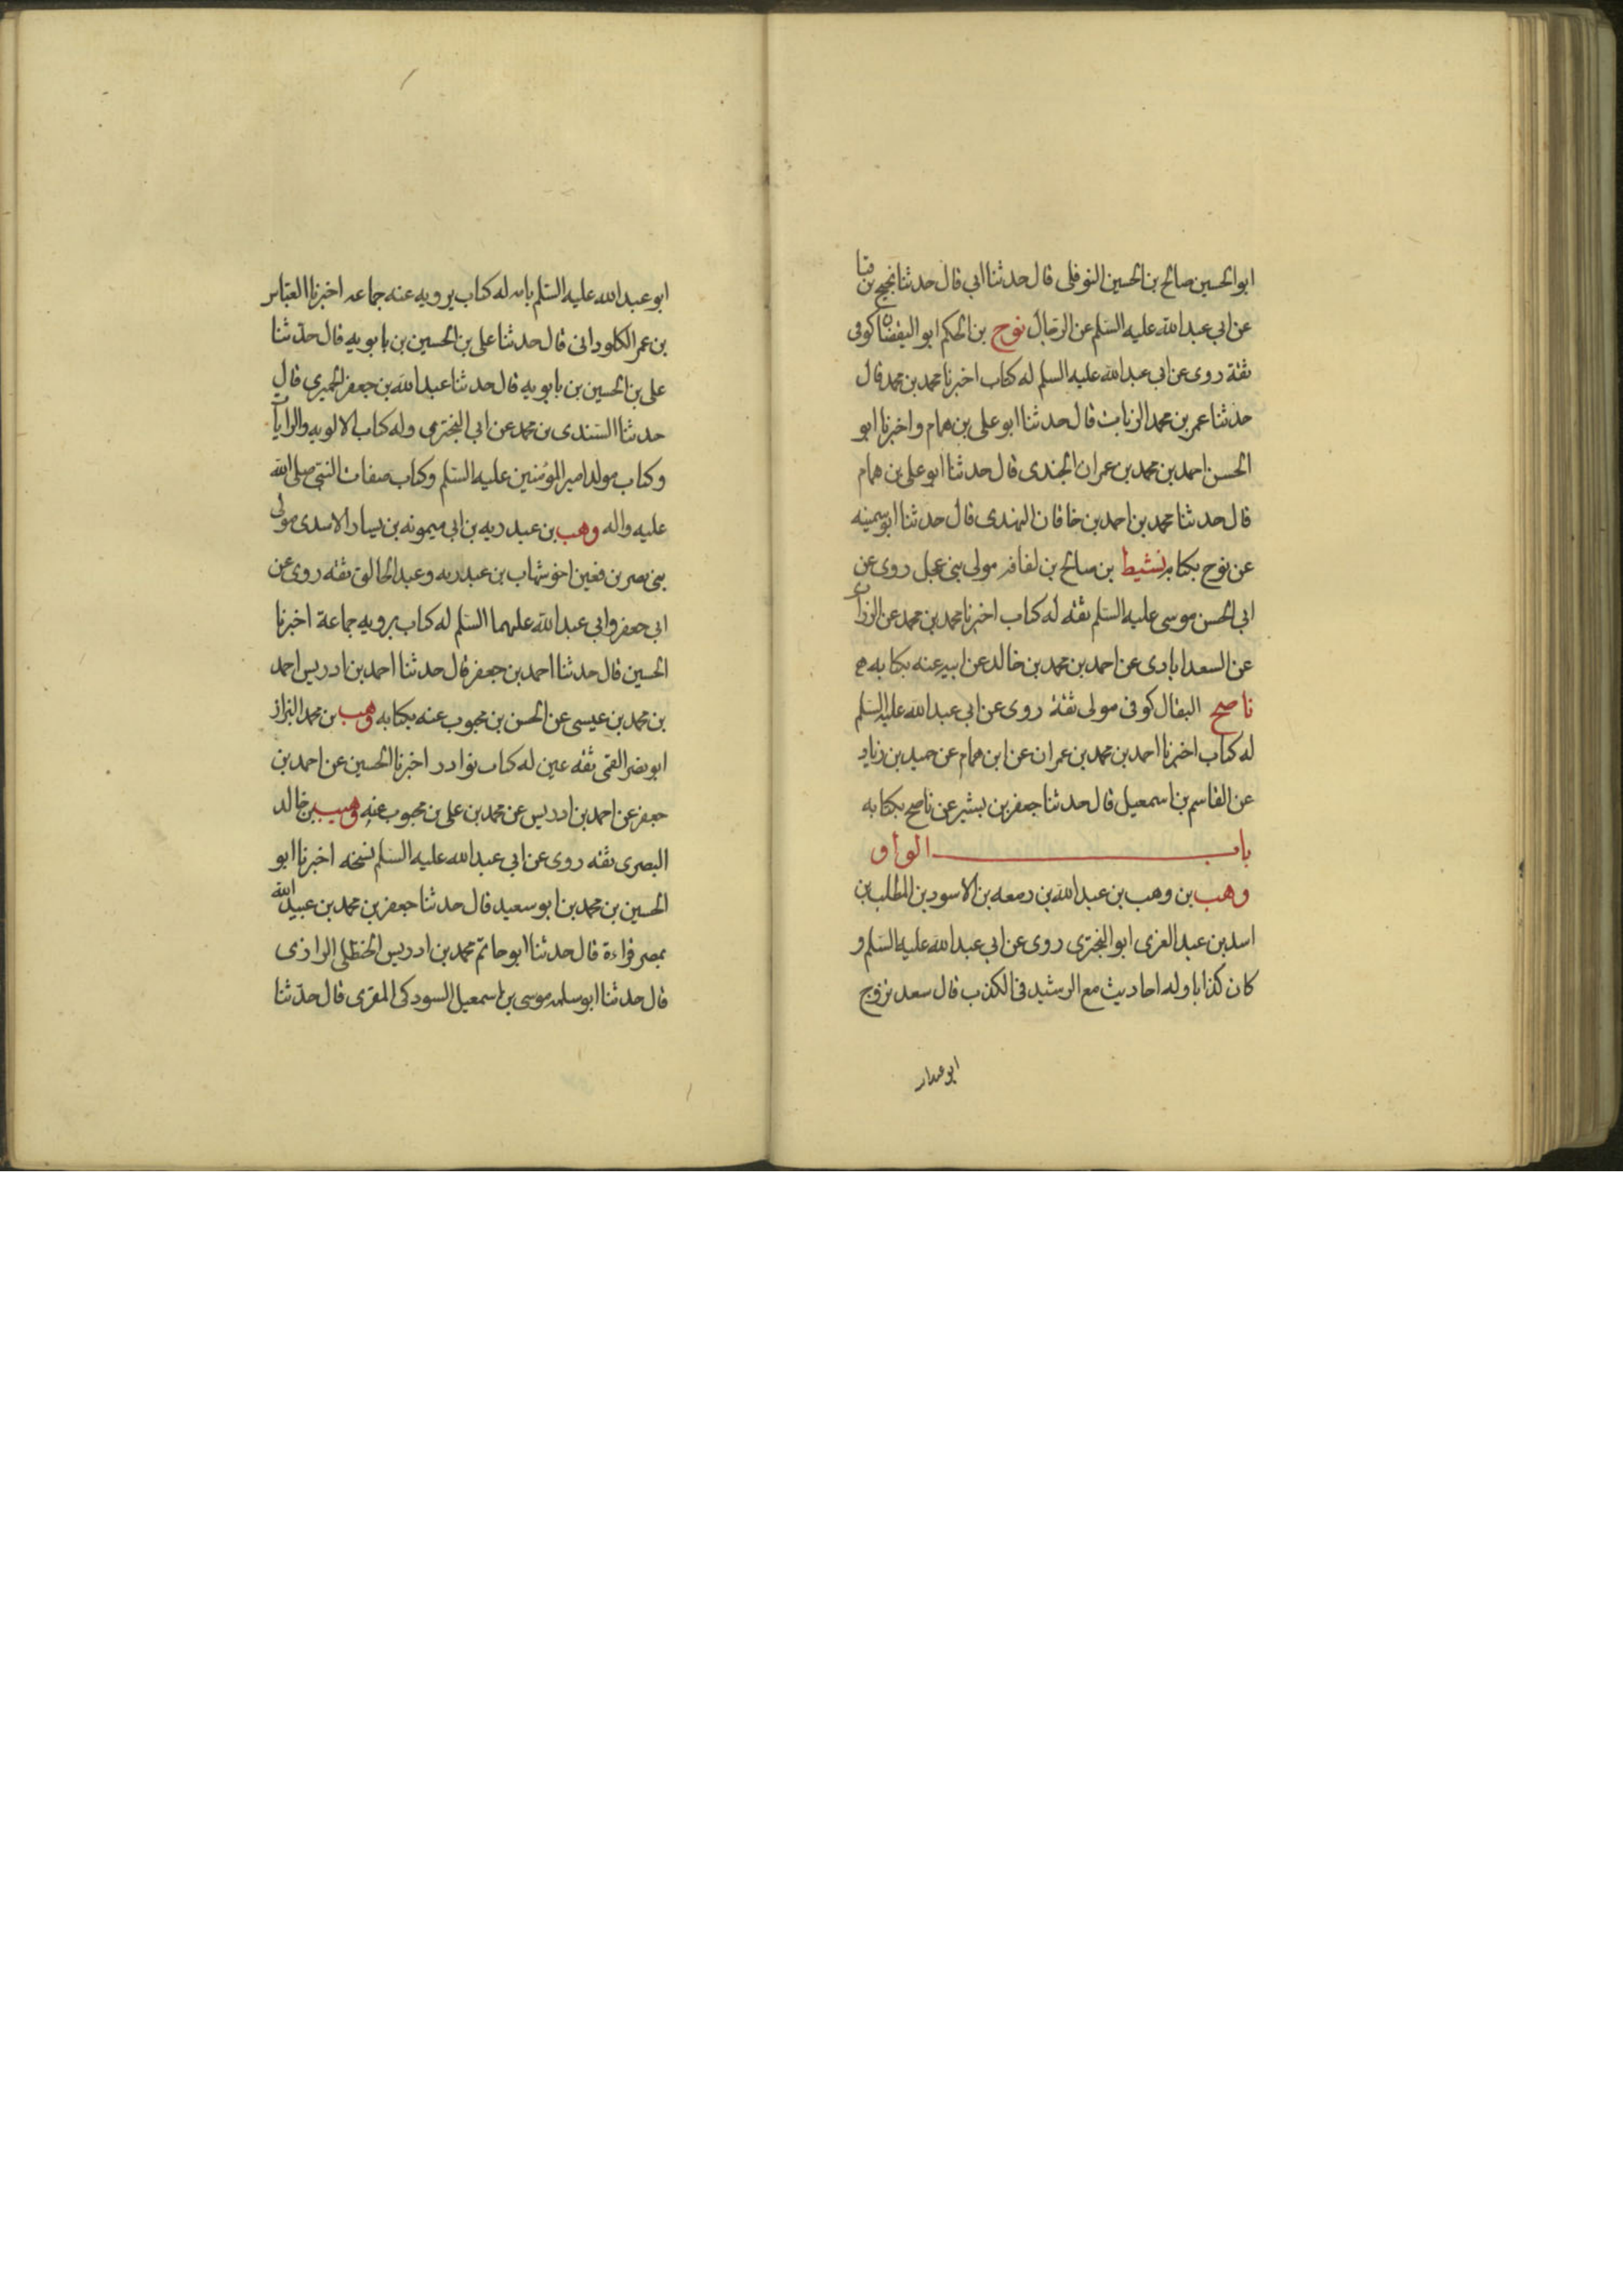 ابوالحسين صالح بن الحسين النوفلى قال حدثنا ابي قال حدثنا نجيح بن قبا
عن ابي عبدالله عليه السلم عن الرجال نوح بن الحكم ابو اليقضان كوفى
ثقة روى عن ابي عبدالله عليه السلم له كتاب اخبرنا محمد بن محمد قال
حدثنا عمر بن محمد الزيات قال حدثنا ابو على بن همام واخبرنا ابو
الحسن احمد بن محمد بن عمران الجندى قال حدثنا ابو على بن همام
قال حدثنا محمد بن احمد بن خاقان النهدى قال حدثنا ابو سمينه
عن نوح بكتابه نشيط بن صالح بن لفافه مولى بنى عجل روى عن
ابي الحسن موسى عليه السلم ثقه له كتاب اخبرنا محمد بن محمد عن الزرارى
عن السعدابادى عن احمد بن محمد بن خالد عن ابيه عنه بكتابه
ناصح البقال كوفى مولى ثقة روى عن ابي عبدالله عليه السلم
له كتاب اخبرنا احمد بن محمد بن عمران عن ابن همام عن حميد بن زياد
عن القاسم بن اسمعيل قال حدثنا جعفر بن بشير عن ناصح بكتابه
باب الواو
وهب بن وهب بن عبدالله بن زمعه بن الاسود بن المطلب بن
اسد بن عبد العزى ابو البخترى روى عن ابي عبدالله عليه السلم و
كان كذابا وله احاديث مع الرشيد فى الكذب قال سعد تزوج
ابو عبدا
ابو عبدالله عليه السلم بامه له كتاب يرويه عنه جماعه اخبرنا العباس
بن عمر الكلوذانى قال حدثنا على بن الحسين بن بابويه قال حدثنا
على بن الحسين بن بابويه قال حدثنا عبدالله بن جعفر الحميري قال
حدثنا السندى بن محمد عن ابي البخترى وله كتاب الالويه والرايات
وكتاب مولد امير المؤمنين عليه السلم وكتاب صفات النبي صلى الله
عليه واله وهب بن عبد ربه بن ابي ميمونه بن يسار الاسدى مولى
بنى نصر بن قعين اخو شهاب بن عبد ربه وعبد الخالق ثقه روى عن
ابي جعفر وابي عبدالله عليهما السلم له كتاب يرويه جماعة اخبرنا
الحسين قال حدثنا احمد بن جعفر قال حدثنا احمد بن ادريس احمد
بن محمد بن عيسى عن الحسن بن محبوب عنه بكتابه وهب بن محمد البزاز
ابو نصر القمى ثقه عين له كتاب نوادر اخبرنا الحسين عن احمد بن
جعفر عن احمد بن ادريس عن محمد بن على بن محبوب عنه وهيب بن خالد
البصرى ثقه روى عن ابي عبدالله عليه السلم نسخه اخبرنا ابو
الحسين بن محمد بن ابو سعيد قال حدثنا جعفر بن محمد بن عبيدالله
بمصر قراءة قال حدثنا ابو حاتم محمد بن ادريس الحنظلى الرازى
قال حدثنا ابو سلمه موسى بن اسمعيل السودكى المقرى قال حدثنا